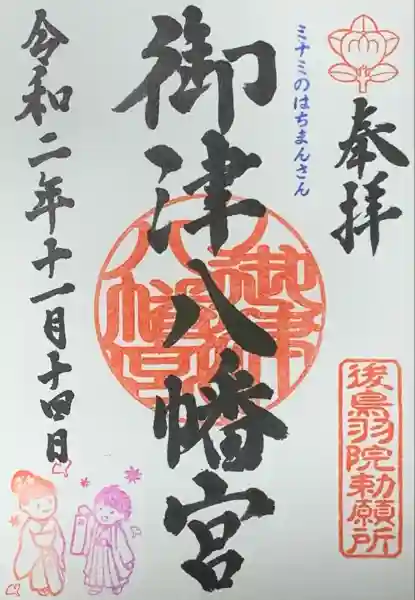 奉拝
後鳥羽院勅願所
ミナミのはちまんさん
御津八幡宮
御津八幡宮
令和二年十一月十四日